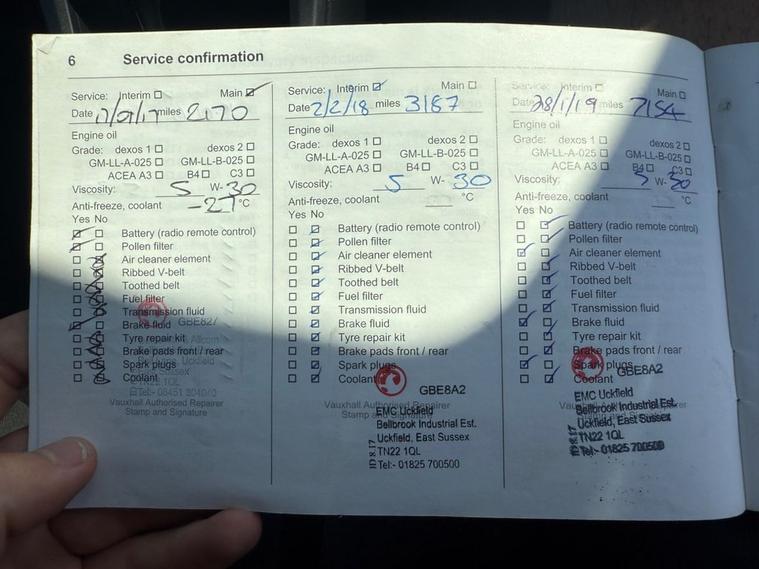 6 Service confirmation
Service: Interim Main
Date miles 2170
Engine oil
Grade: dexos 1 dexos 2
GM-LL-A-025 GM-LL-B-025
ACEA A3 B4 C3
Viscosity: 5 W- 30
Anti-freeze, coolant -27 °C
Yes No
Battery (radio remote control)
Pollen filter
Air cleaner element
Ribbed V-belt
Toothed belt
Fuel filter
Transmission fluid
Brake fluid
GBE827
Tyre repair kit
Brake pads front / rear
Spark plugs
Coolant
Vauxhall Authorised Repairer
Stamp and Signature
Service: Interim Main
Date 2/2/18 miles 3187
Engine oil
Grade: dexos 1 dexos 2
GM-LL-A-025 GM-LL-B-025
ACEA A3 B4 C3
Viscosity: 5 W- 30
Anti-freeze, coolant °C
Yes No
Battery (radio remote control)
Pollen filter
Air cleaner element
Ribbed V-belt
Toothed belt
Fuel filter
Transmission fluid
Brake fluid
Tyre repair kit
Brake pads front / rear
Spark plugs
Coolant
GBE8A2
Vauxhall Authorised Repairer
Stamp and Signature
EMC Uckfield
Bellbrook Industrial Est.
Uckfield, East Sussex
TN22 1QL
Tel:- 01825 700500
ID 8.17
Service: Interim Main
Date 28/1/19 miles 7154
Engine oil
Grade: dexos 1 dexos 2
GM-LL-A-025 GM-LL-B-025
ACEA A3 B4 C3
Viscosity: 5 W- 30
Anti-freeze, coolant °C
Yes No
Battery (radio remote control)
Pollen filter
Air cleaner element
Ribbed V-belt
Toothed belt
Fuel filter
Transmission fluid
Brake fluid
Tyre repair kit
Brake pads front / rear
Spark plugs
Coolant
GBE8A2
EMC Uckfield
Bellbrook Industrial Est.
Uckfield, East Sussex
TN22 1QL
Tel:- 01825 700500